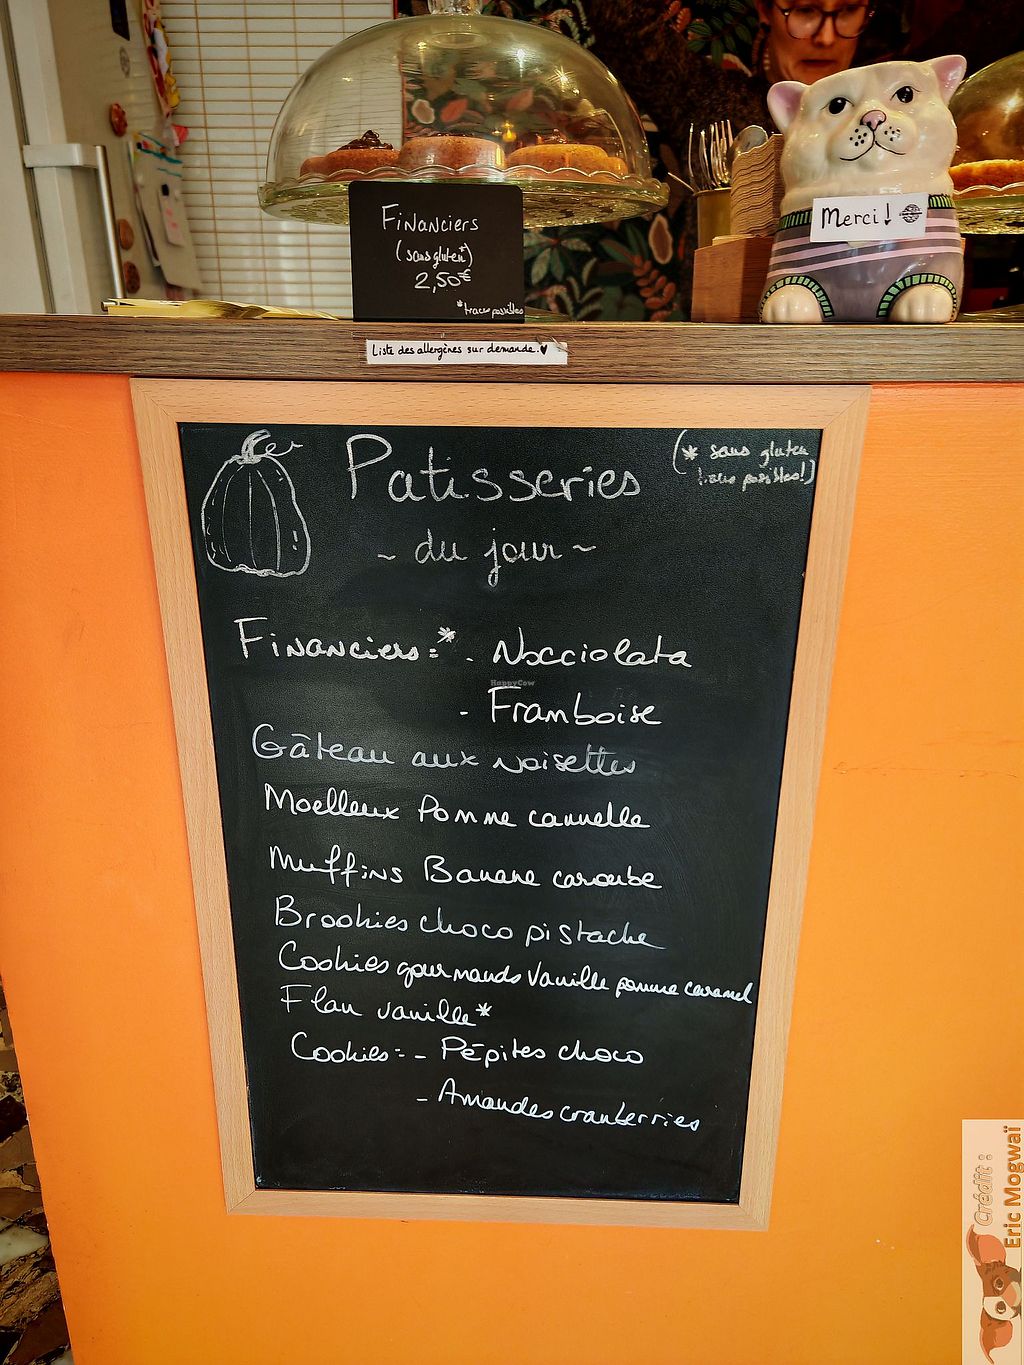 Financiers
(sans gluten*)
2,50€
*traces possibles
Merci!
Liste des allergènes sur demande.♥
Patisseries
~ du jour ~
(* sans gluten
possibles!)
Financiers=* - Nocciolata
HappyCow
- Framboise
Gâteau aux noisettes
Moelleux Pomme cannelle
Muffins Banane caroube
Brookies choco pistache
Cookies gourmands Vanille pomme caramel
Flan vanille*
Cookies= - Pépites choco
- Amandes cranberries
Crédit :
Eric Mogwaï